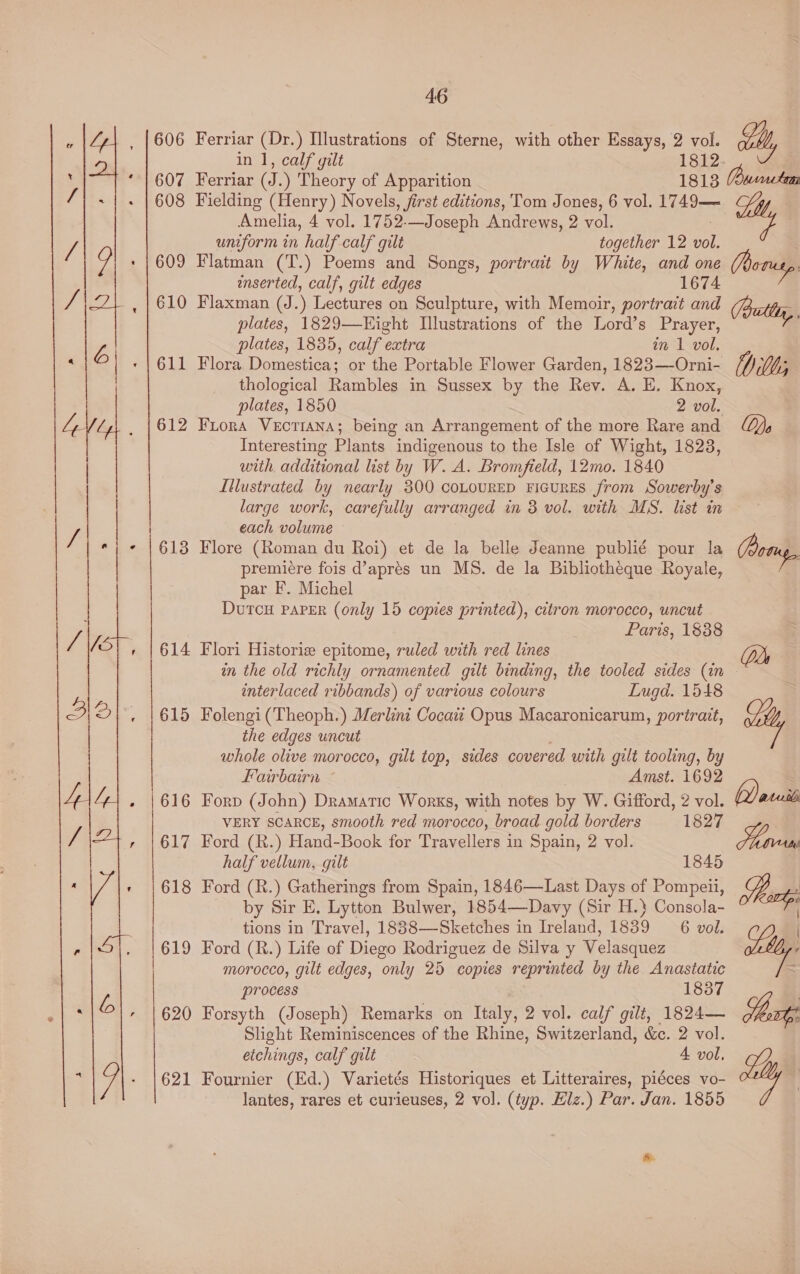 46
606 Ferriar (Dr.) Illustrations of Sterne, with other Essays, 2 vol.
in 1, calf gilt 1812
607 Ferriar (J.) Theory of Apparition 1813
608 Fielding (Henry) Novels, first editions, Tom Jones, 6 vol. 1749—
Amelia, 4 vol. 1752—Joseph Andrews, 2 vol.
uniform in half calf gilt together 12 vol.
609 Flatman (T.) Poems and Songs, portrait by White, and one
inserted, calf, gilt edges 1674
610 Flaxman (J.) Lectures on Sculpture, with Memoir, portrait and
plates, 1829—Eight Illustrations of the Lord's Prayer,
plates, 1835, calf extra in 1 vol.
611 Flora Domestica; or the Portable Flower Garden, 1823—Orni-
thological Rambles in Sussex by the Rev. A. E. Knox,
plates, 1850 2 vol.
612 Flora Vectiana; being an Arrangement of the more Rare and
Interesting Plants indigenous to the Isle of Wight, 1823,
with additional list by W. A. Bromfield, 12mo. 1840
Illustrated by nearly 300 COLOURED FIGURES from Sowerby's
large work, carefully arranged in 3 vol. with MS. list in
each volume
613 Flore (Roman du Roi) et de la belle Jeanne publié pour la
premiére fois d'aprés un MS. de la Bibliothéque Royale,
par F. Michel
Dutch paper (only 15 copies printed), citron morocco, uncut
Paris, 1838
614 Flori Historiæ epitome, ruled with red lines
in the old richly ornamented gilt binding, the tooled sides (in
interlaced ribbands) of various colours Lugd. 1548
615 Folengi (Theoph.) Merlini Cocaii Opus Macaronicarum, portrait,
the edges uncut
whole olive morocco, gilt top, sides covered with gilt tooling, by
Fairbairn Amst. 1692
616 Ford (John) Dramatic Works, with notes by W. Gifford, 2 vol.
VERY SCARCE, smooth red morocco, broad gold borders 1827
617 Ford (R.) Hand-Book for Travellers in Spain, 2 vol.
half vellum, gilt 1845
618 Ford (R.) Gatherings from Spain, 1846—Last Days of Pompeii,
by Sir E. Lytton Bulwer, 1854—Davy (Sir H.) Consola-
tions in Travel, 1838—Sketches in Ireland, 1839 6 vol.
619 Ford (R.) Life of Diego Rodriguez de Silva y Velasquez
morocco, gilt edges, only 25 copies reprinted by the Anastatic
process 1837
620 Forsyth (Joseph) Remarks on Italy, 2 vol. calf gilt, 1824—
Slight Reminiscences of the Rhine, Switzerland, &c. 2 vol.
etchings, calf gilt 4 vol.
621 Fournier (Ed.) Varietés Historiques et Litteraires, piéces vo-
lantes, rares et curieuses, 2 vol. (typ. Elz.) Par. Jan. 1855